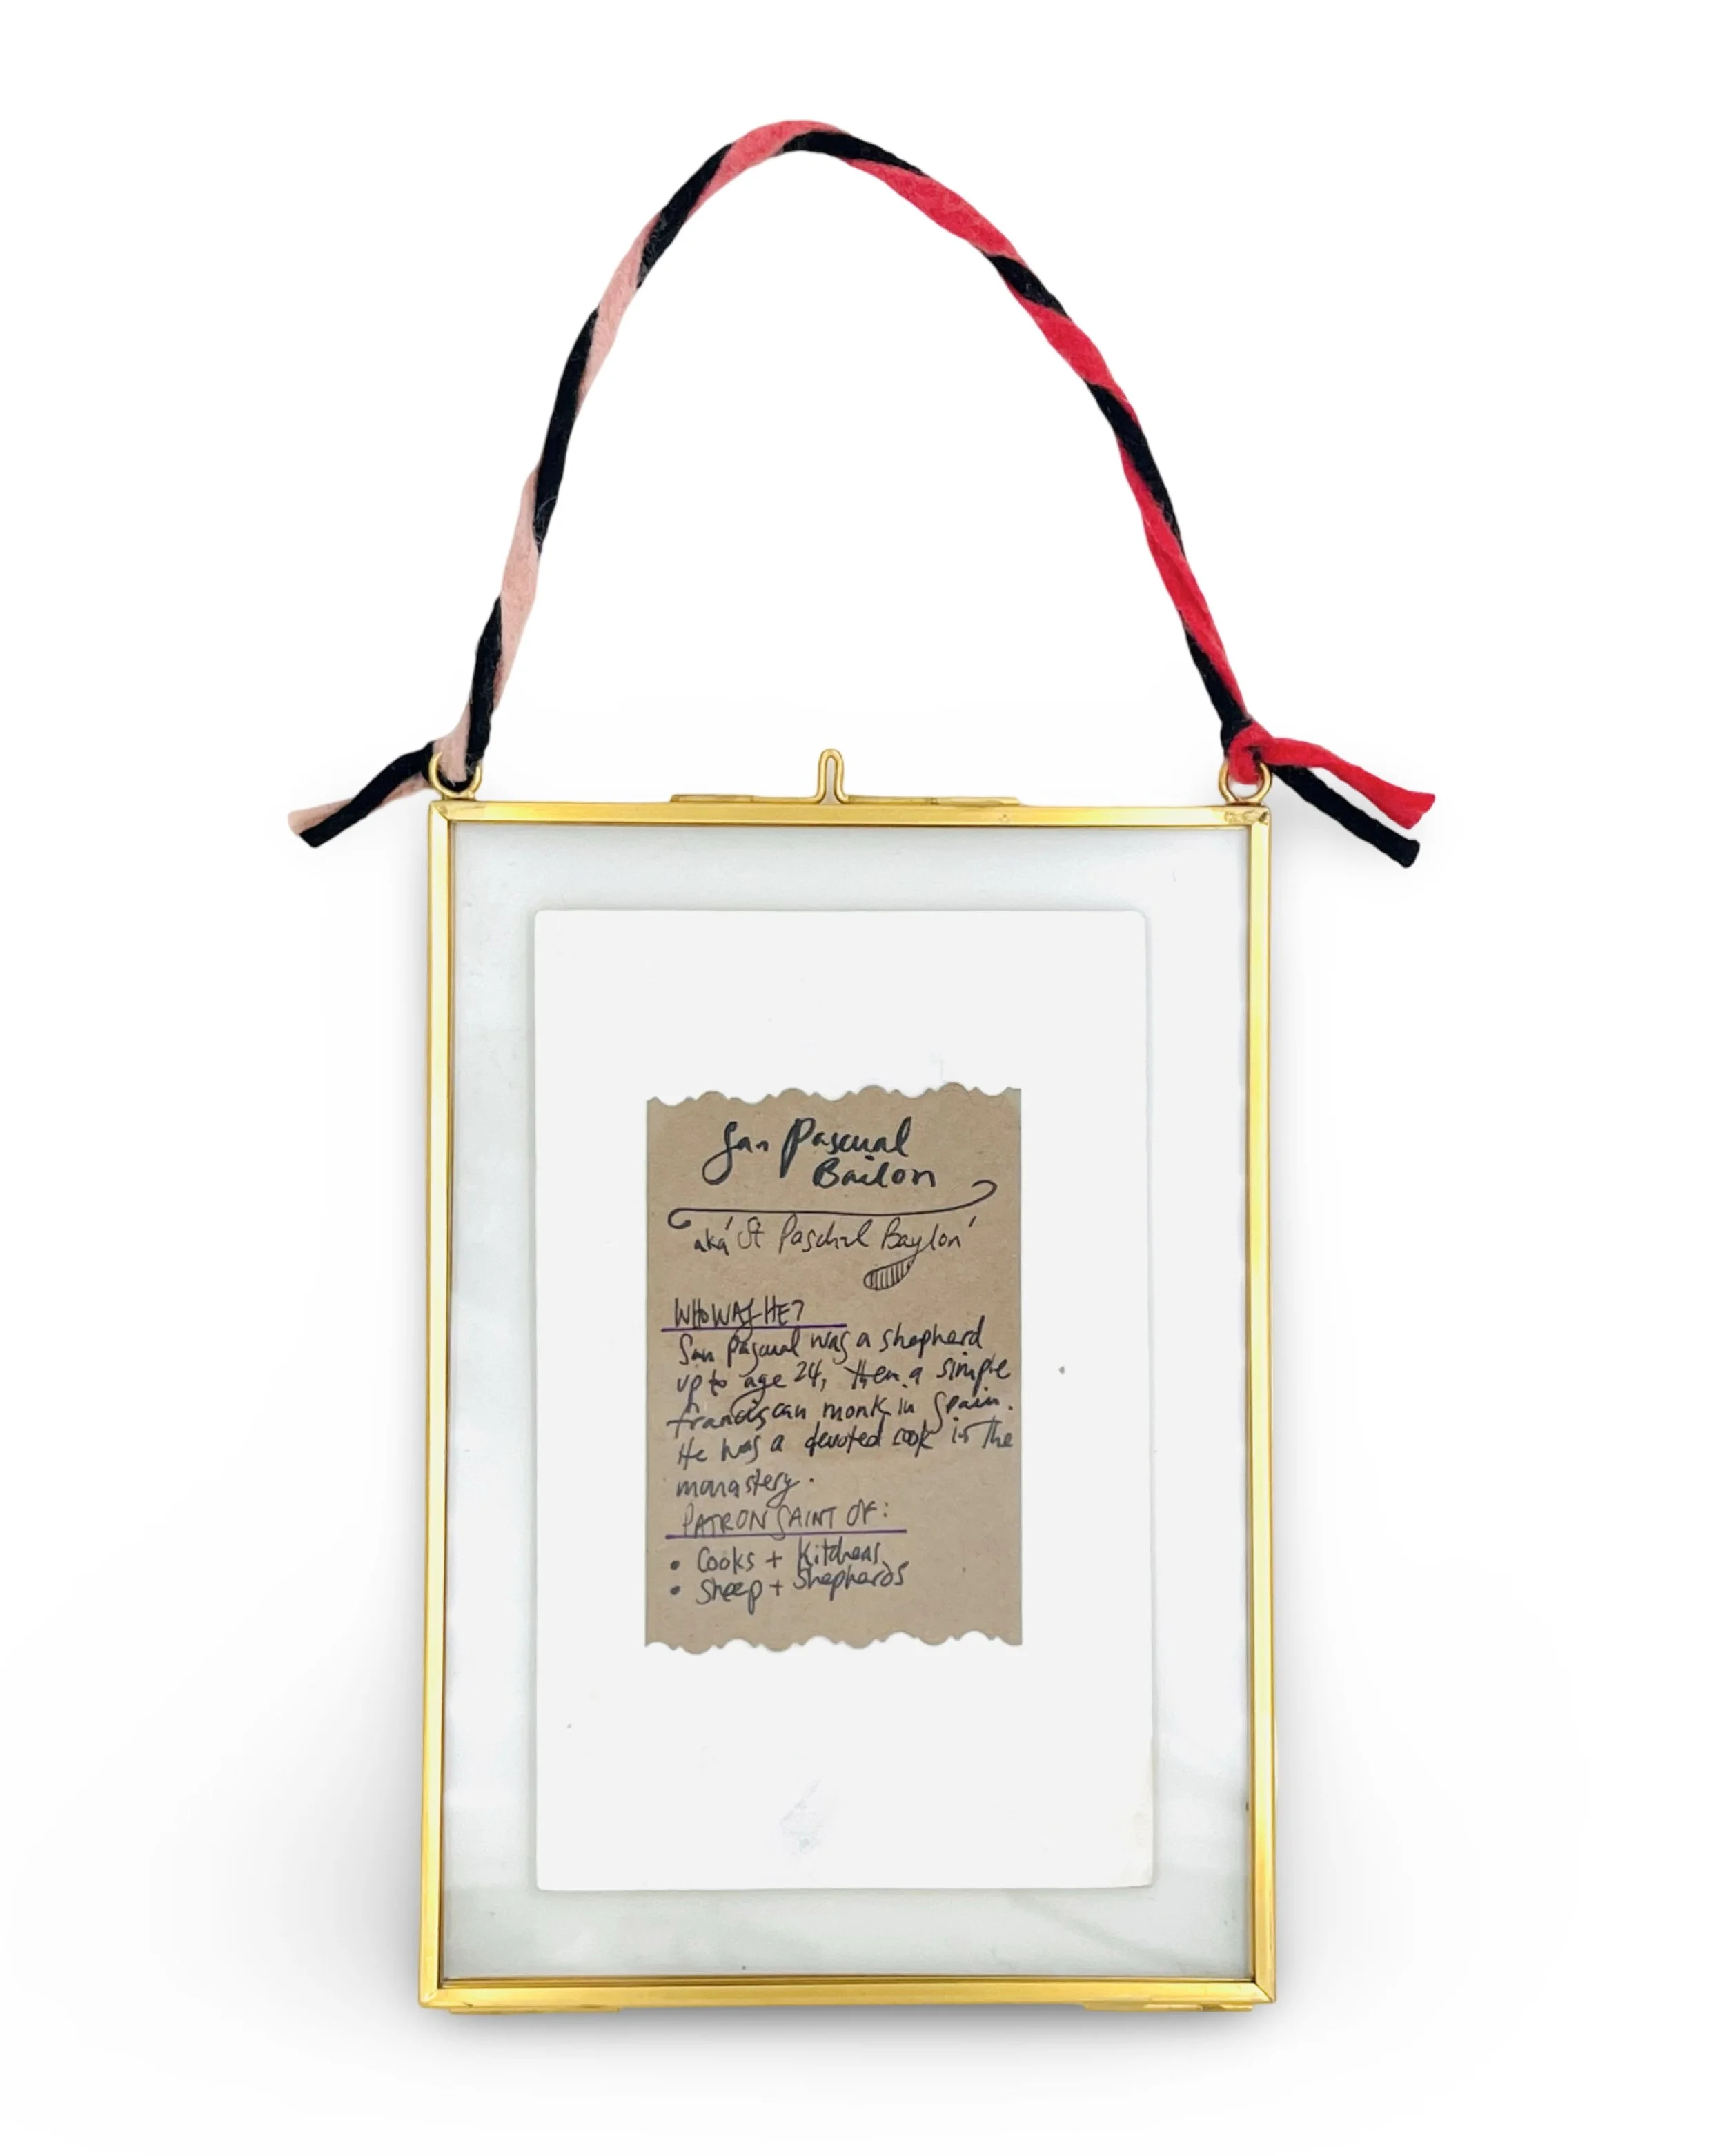 San Pascual
Bailon
aka 'St Paschal Baylon'
WHO WAS HE?
San Pascual was a shepherd
up to age 24, then a simple
franciscan monk in Spain.
He was a devoted cook in the
monastery.
PATRON SAINT OF:
• Cooks + Kitchens
• Sheep + Shepherds